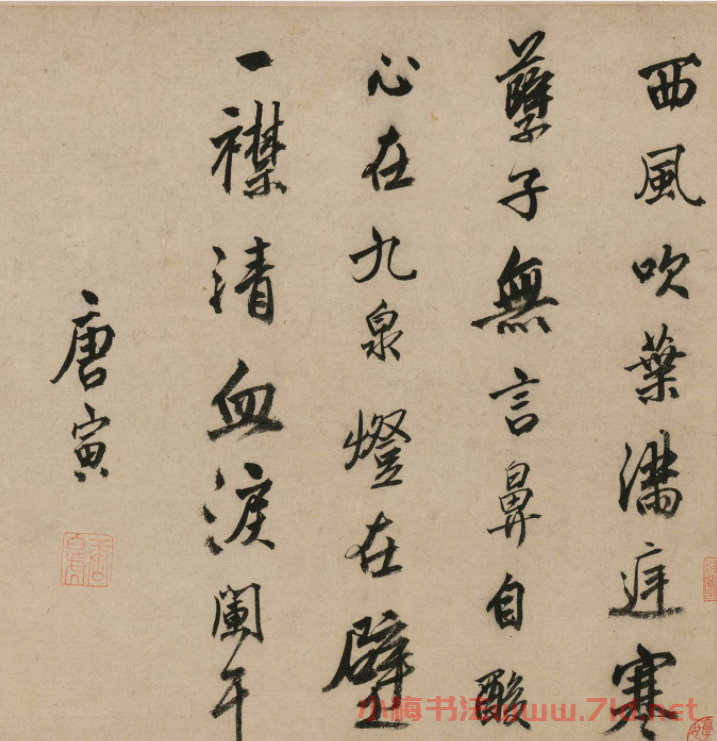 西風吹葉滿庭寒
孽子無言鼻自酸
心在九泉燈在壁
一襟清血淚闌干
唐寅
小梅书法www.7ld.net